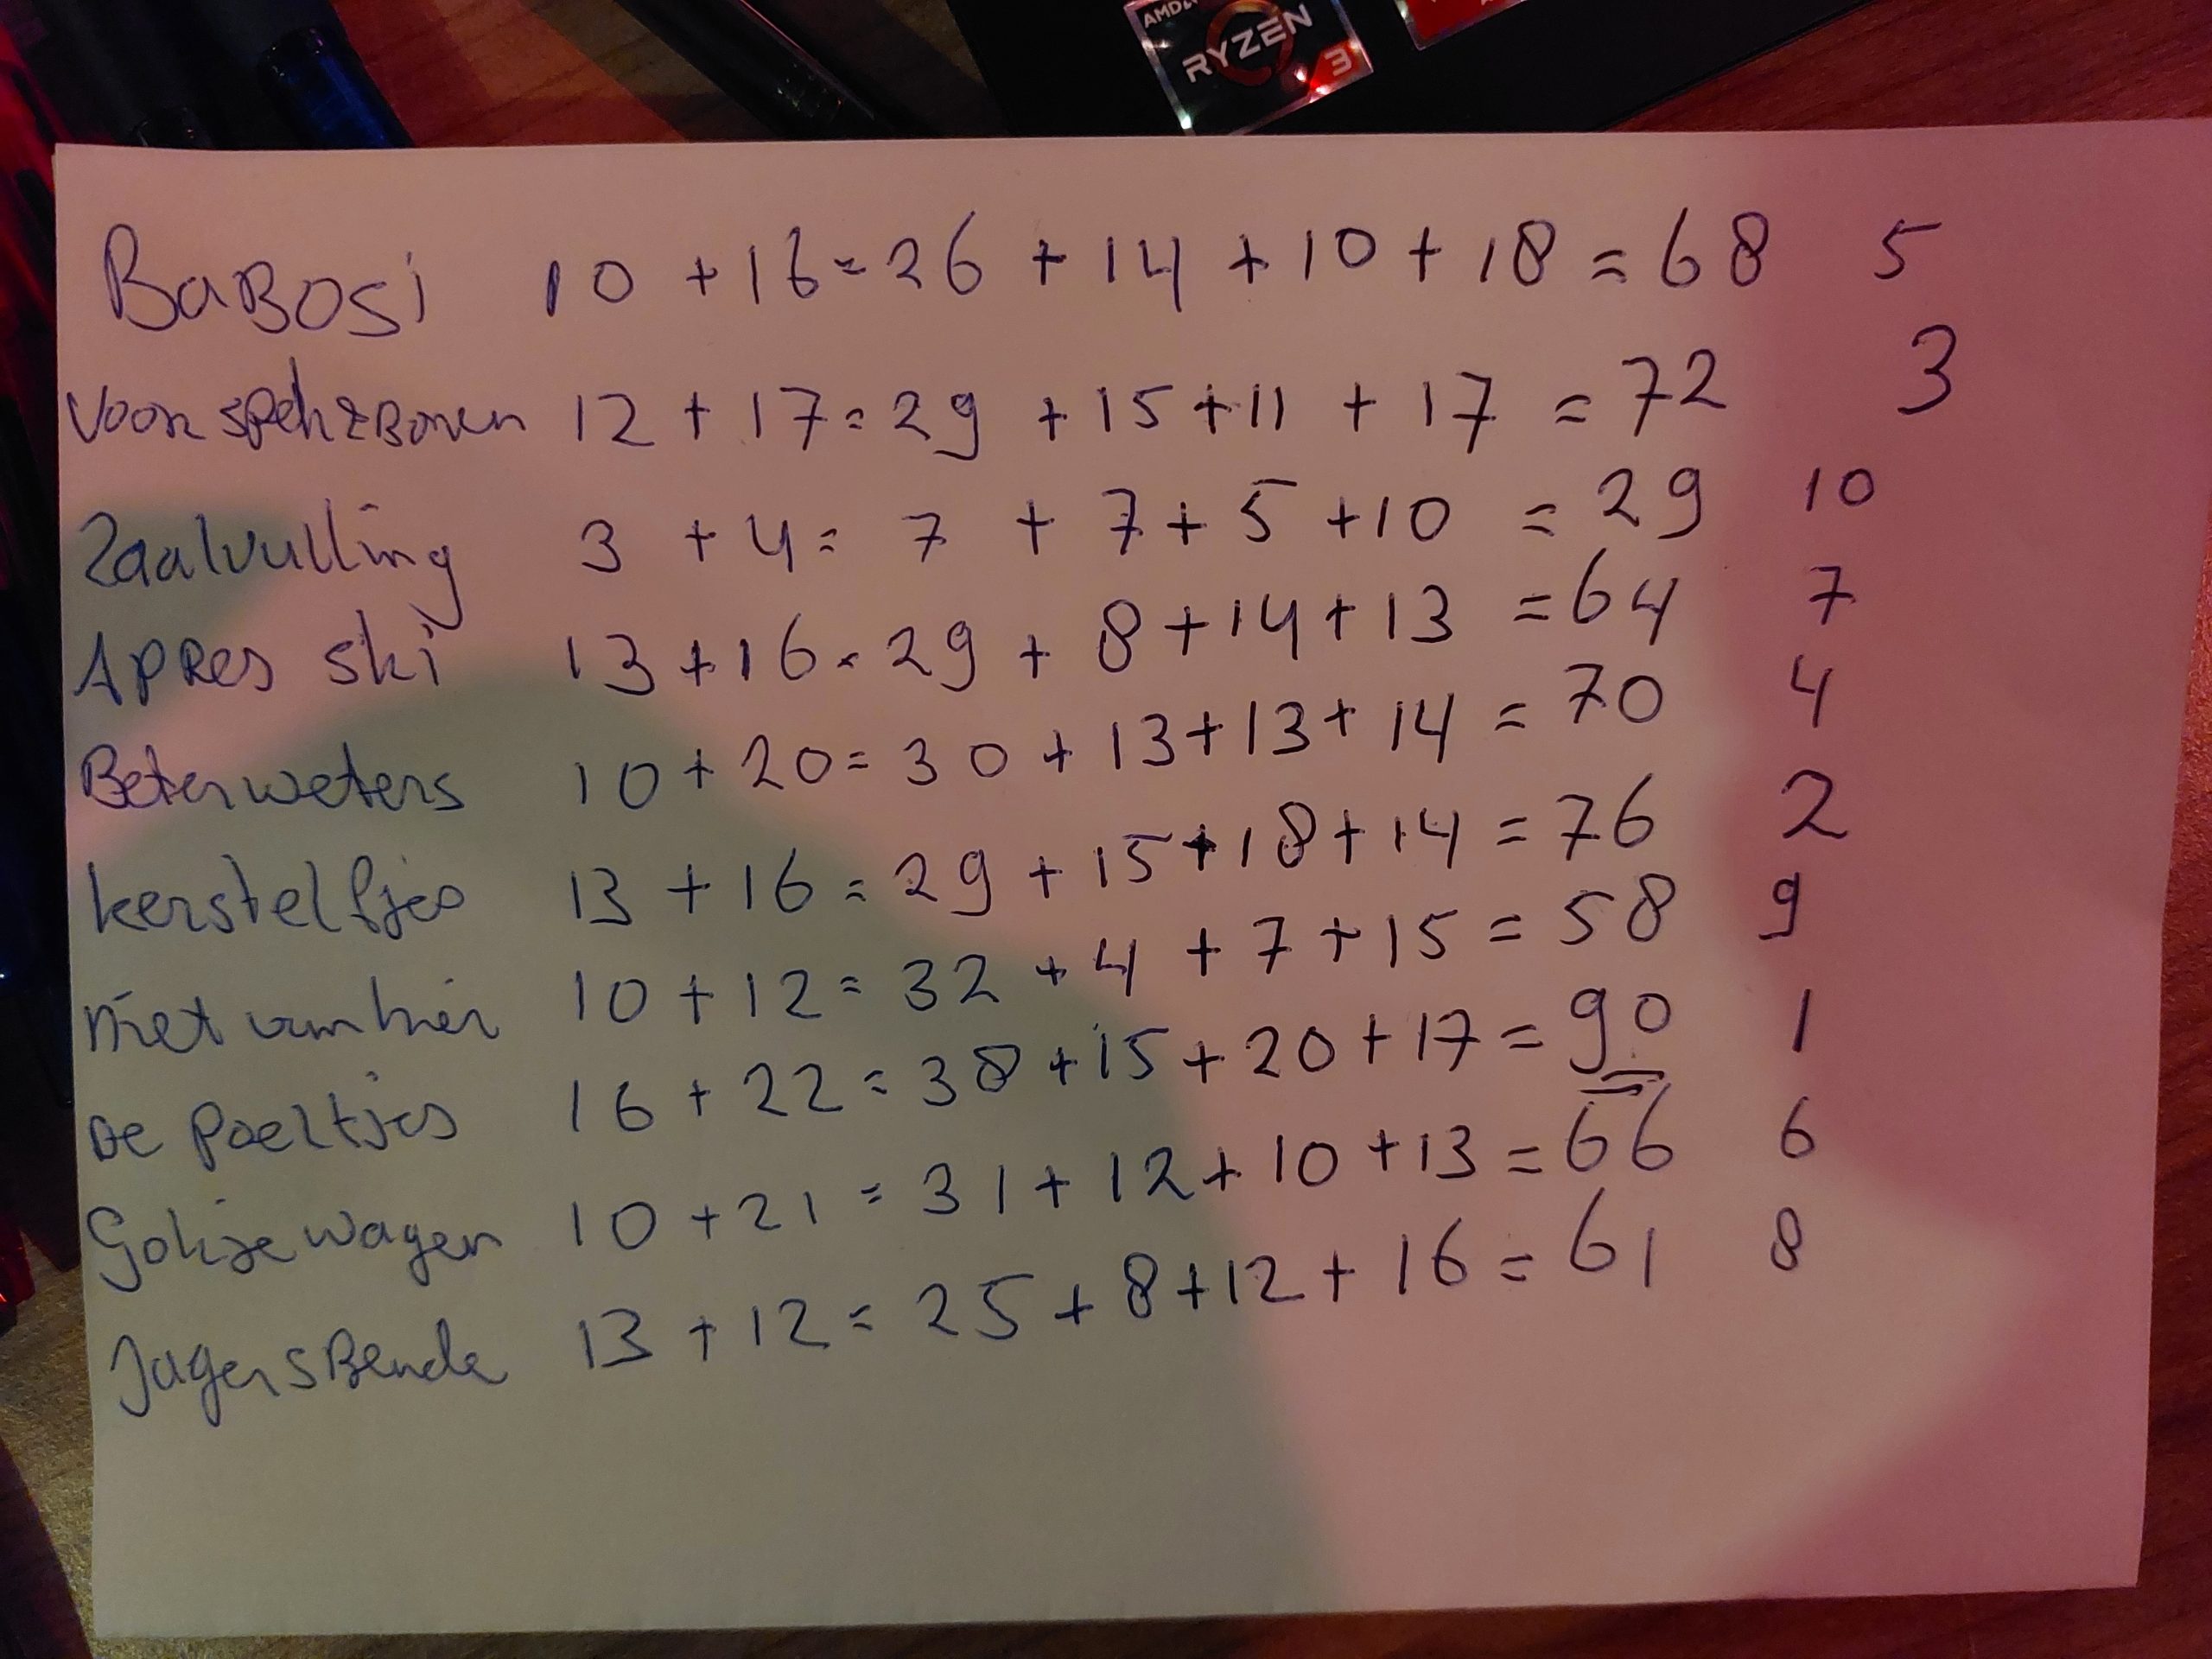 AMD
RYZEN
3
BaBosi 10 + 16 = 26 + 14 + 10 + 18 = 68 5
Voor spek & Bonen 12 + 17 = 29 + 15 + 11 + 17 = 72 3
Zaalvulling 3 + 4 = 7 + 7 + 5 + 10 = 29 10
Apres ski 13 + 16 = 29 + 8 + 14 + 13 = 64 7
Beterweters 10 + 20 = 30 + 13 + 13 + 14 = 70 4
kerstelfjes 13 + 16 = 29 + 15 + 18 + 14 = 76 2
niet van hier 10 + 12 = 32 + 4 + 7 + 15 = 58 9
De Poeltjes 16 + 22 = 38 + 15 + 20 + 17 = 90 1
Gokje wagen 10 + 21 = 31 + 12 + 10 + 13 = 66 6
JagersBende 13 + 12 = 25 + 8 + 12 + 16 = 61 8